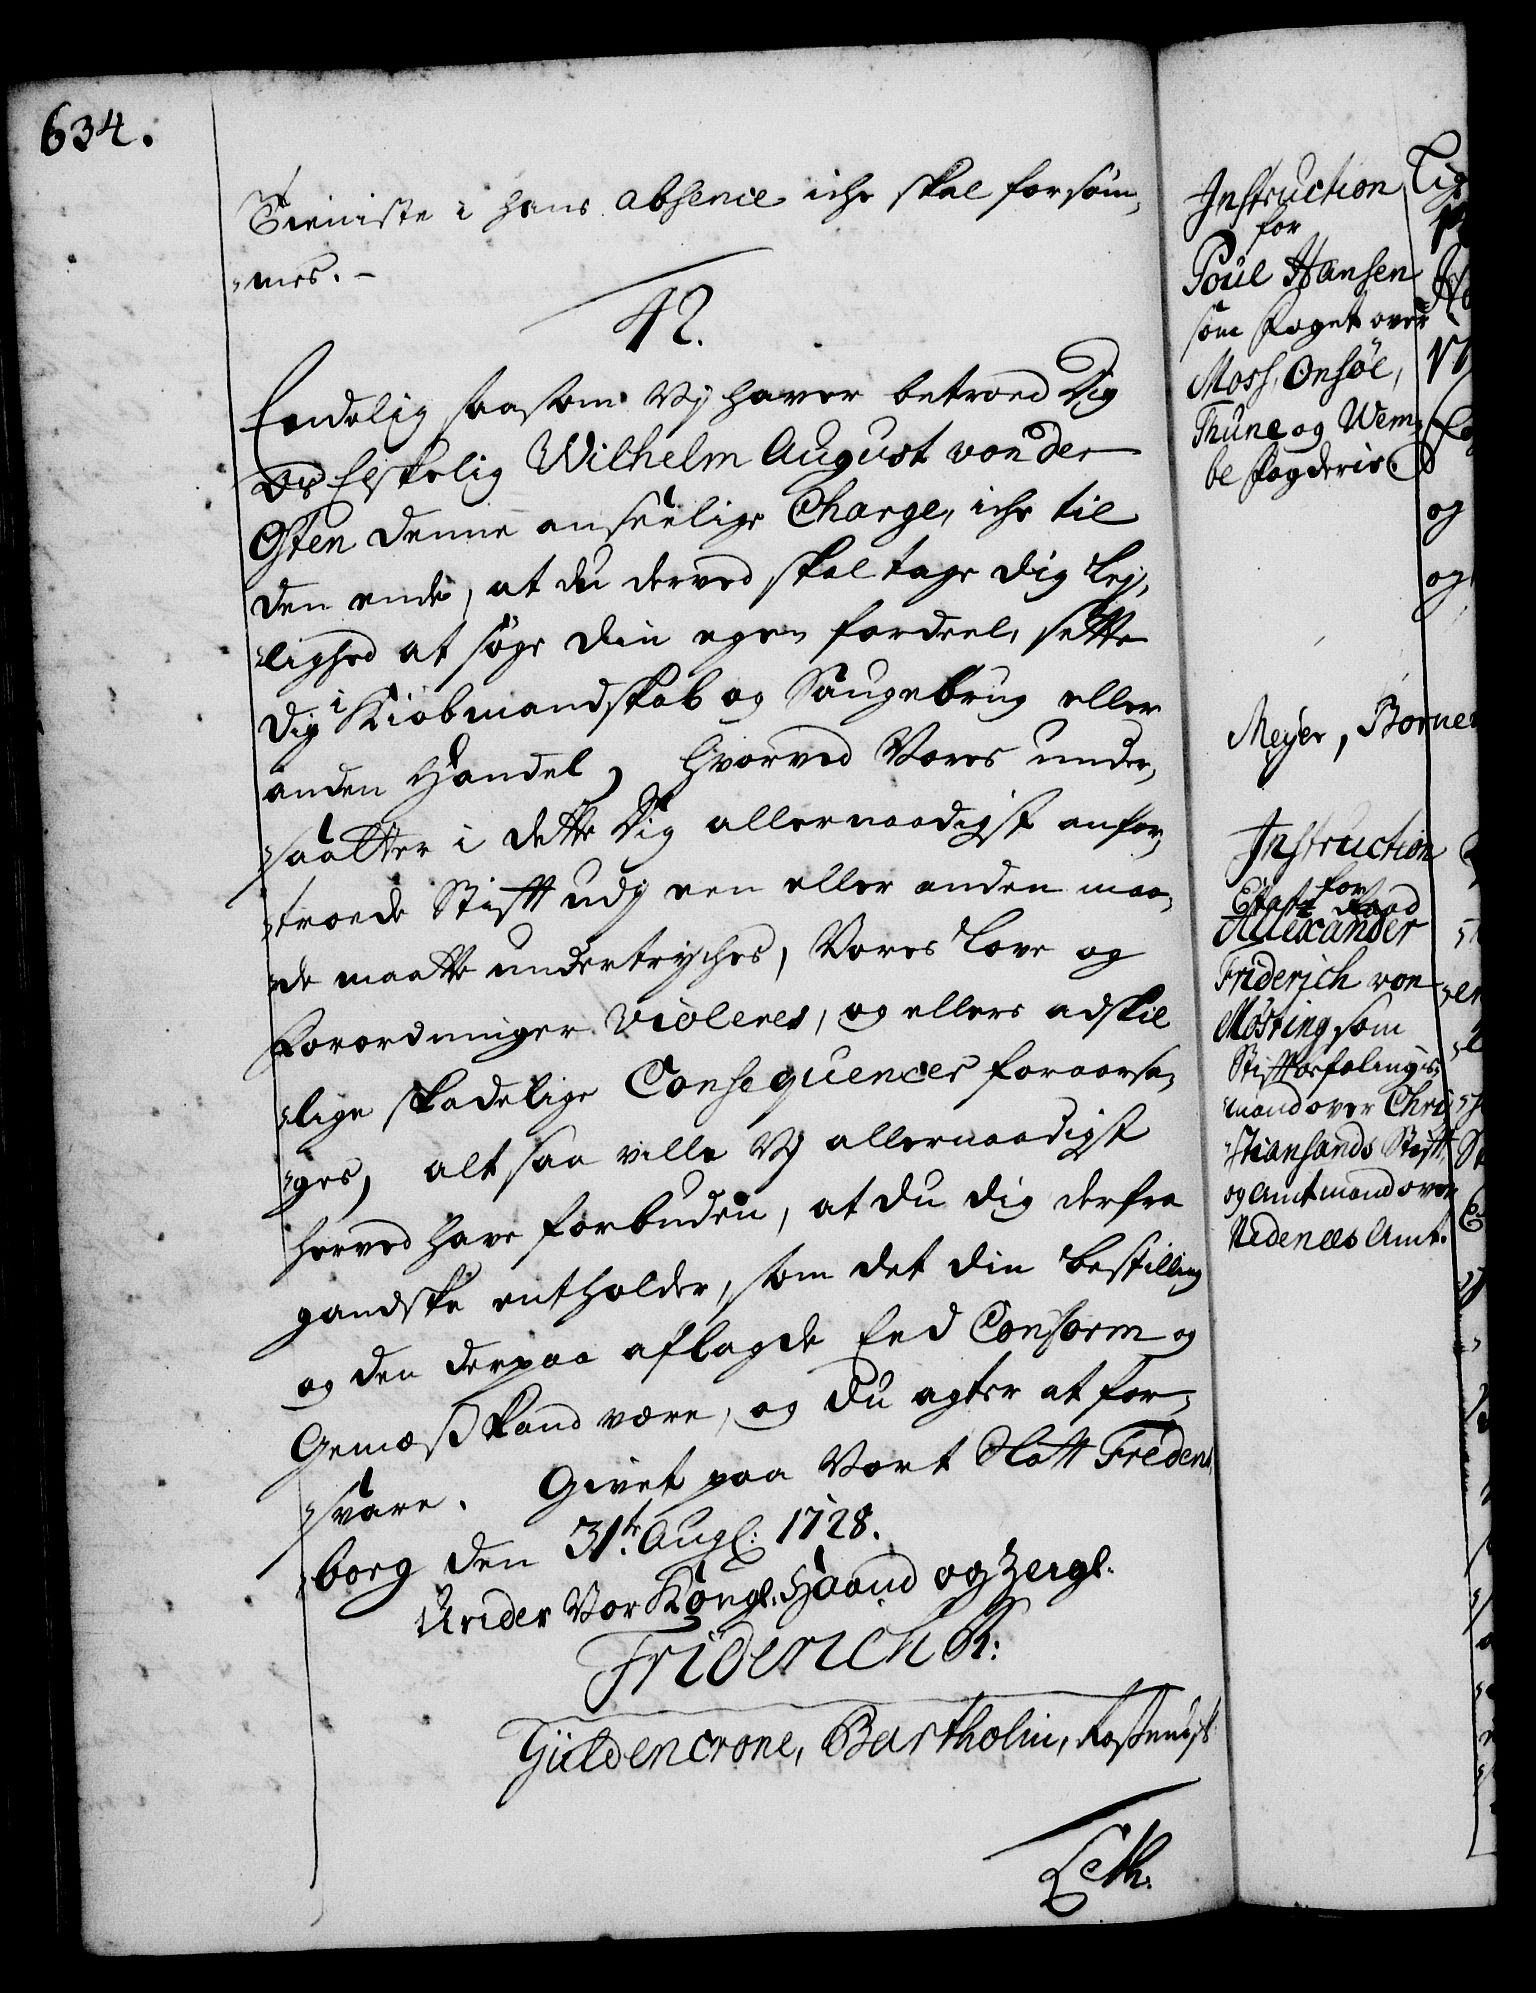 634.
Tieniste i hans absence iche skal forsöm„
„mes. –
42.
Endelig saasom Vij haver betroed Dig
Os Elskelig Wilhelm August von der
Osten denne anseelige Charge, iche til
den ende, at du derved skal tage dig lej„
„lighed at søge din egen fordeel, sette
dig i Kiøbmandskab og Saugebrug eller
anden Handel, hvorved Vores under„
„saatter i dette Dig allernaadigst anfor„
„troede Stift udj een eller anden maa„
„de maatte undertryches, Vores Love og
Forordninger violeres, og ellers adskil
„lige skadelige Consequencer foraarsa„
„ges, alt saa ville Vj allernaadigst
herved have forbuden, at du dig derfra
gandske entholder, som det din bestilling
og den derpaa aflagde Eed Conform og
Gemæs kand være, og du agter at for„
„svare. Givet paa Vort Slott Fredens„
„borg den 31.te Aug: 1728.
Under Vor Kongl. Haand og Zeigl.
Friderich R:
Güldencrone, Bartholin, Rostrupf
Leth.
Instruction
for
Poül Hansen
som foget over
Moss, Onsøe,
Thüne og Wem„
be fogderie.
Meyer, Borne
Instruction
for
Etats Raad
Allexander
Friderich von
Mösting som
Stiftbefalings„
mand over Chri„
„stiansands Stift
og Amtmand over
Nedenees Amt.
og
og